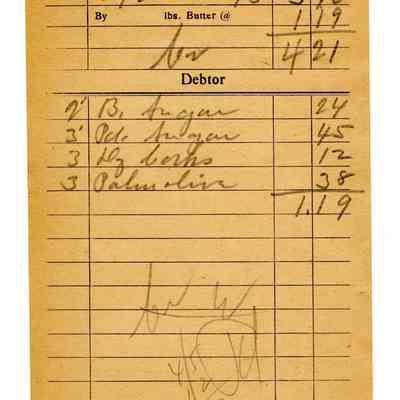 By lbs. Butter @ 1 19
4 21
Debtor
2' B. Sugar 24
3' Pd. Sugar 45
3 Dz Corks 12
3 Palmolive 38
1.19